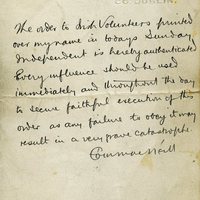 The order to Irish Volunteers printed
over my name in today's Sunday
Independent is hereby authenticated
Every influence should be used
immediately and throughout the day
to secure faithful execution of this
order as any failure to obey it may
result in a very grave catastrophe
Eoin MacNeill